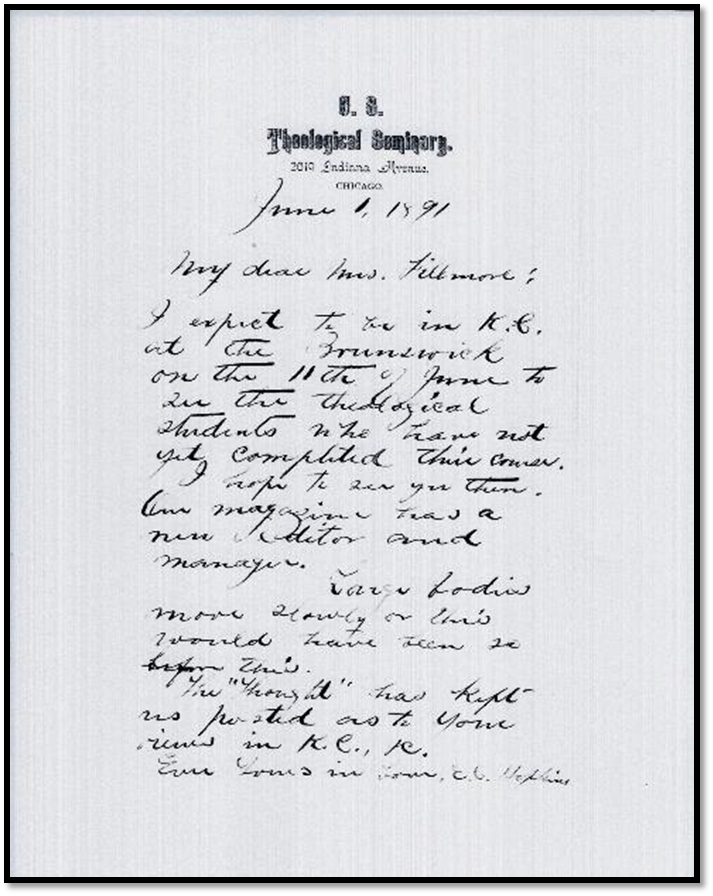 C. S.
Theological Seminary.
2019 Indiana Avenue.
CHICAGO.
June 1, 1891
My dear Mrs. Fillmore:
I expect to be in K.C.
at the Brunswick
on the 11th of June to
see the theological
students who have not
yet completed their course.
I hope to see you then.
Our magazine has a
new Editor and
manager.
Large bodies
move slowly or this
would have been so
before this.
The "Thought" has kept
us posted as to your
views in K.C.,
Ever Yours in Love, E.C. Hopkins